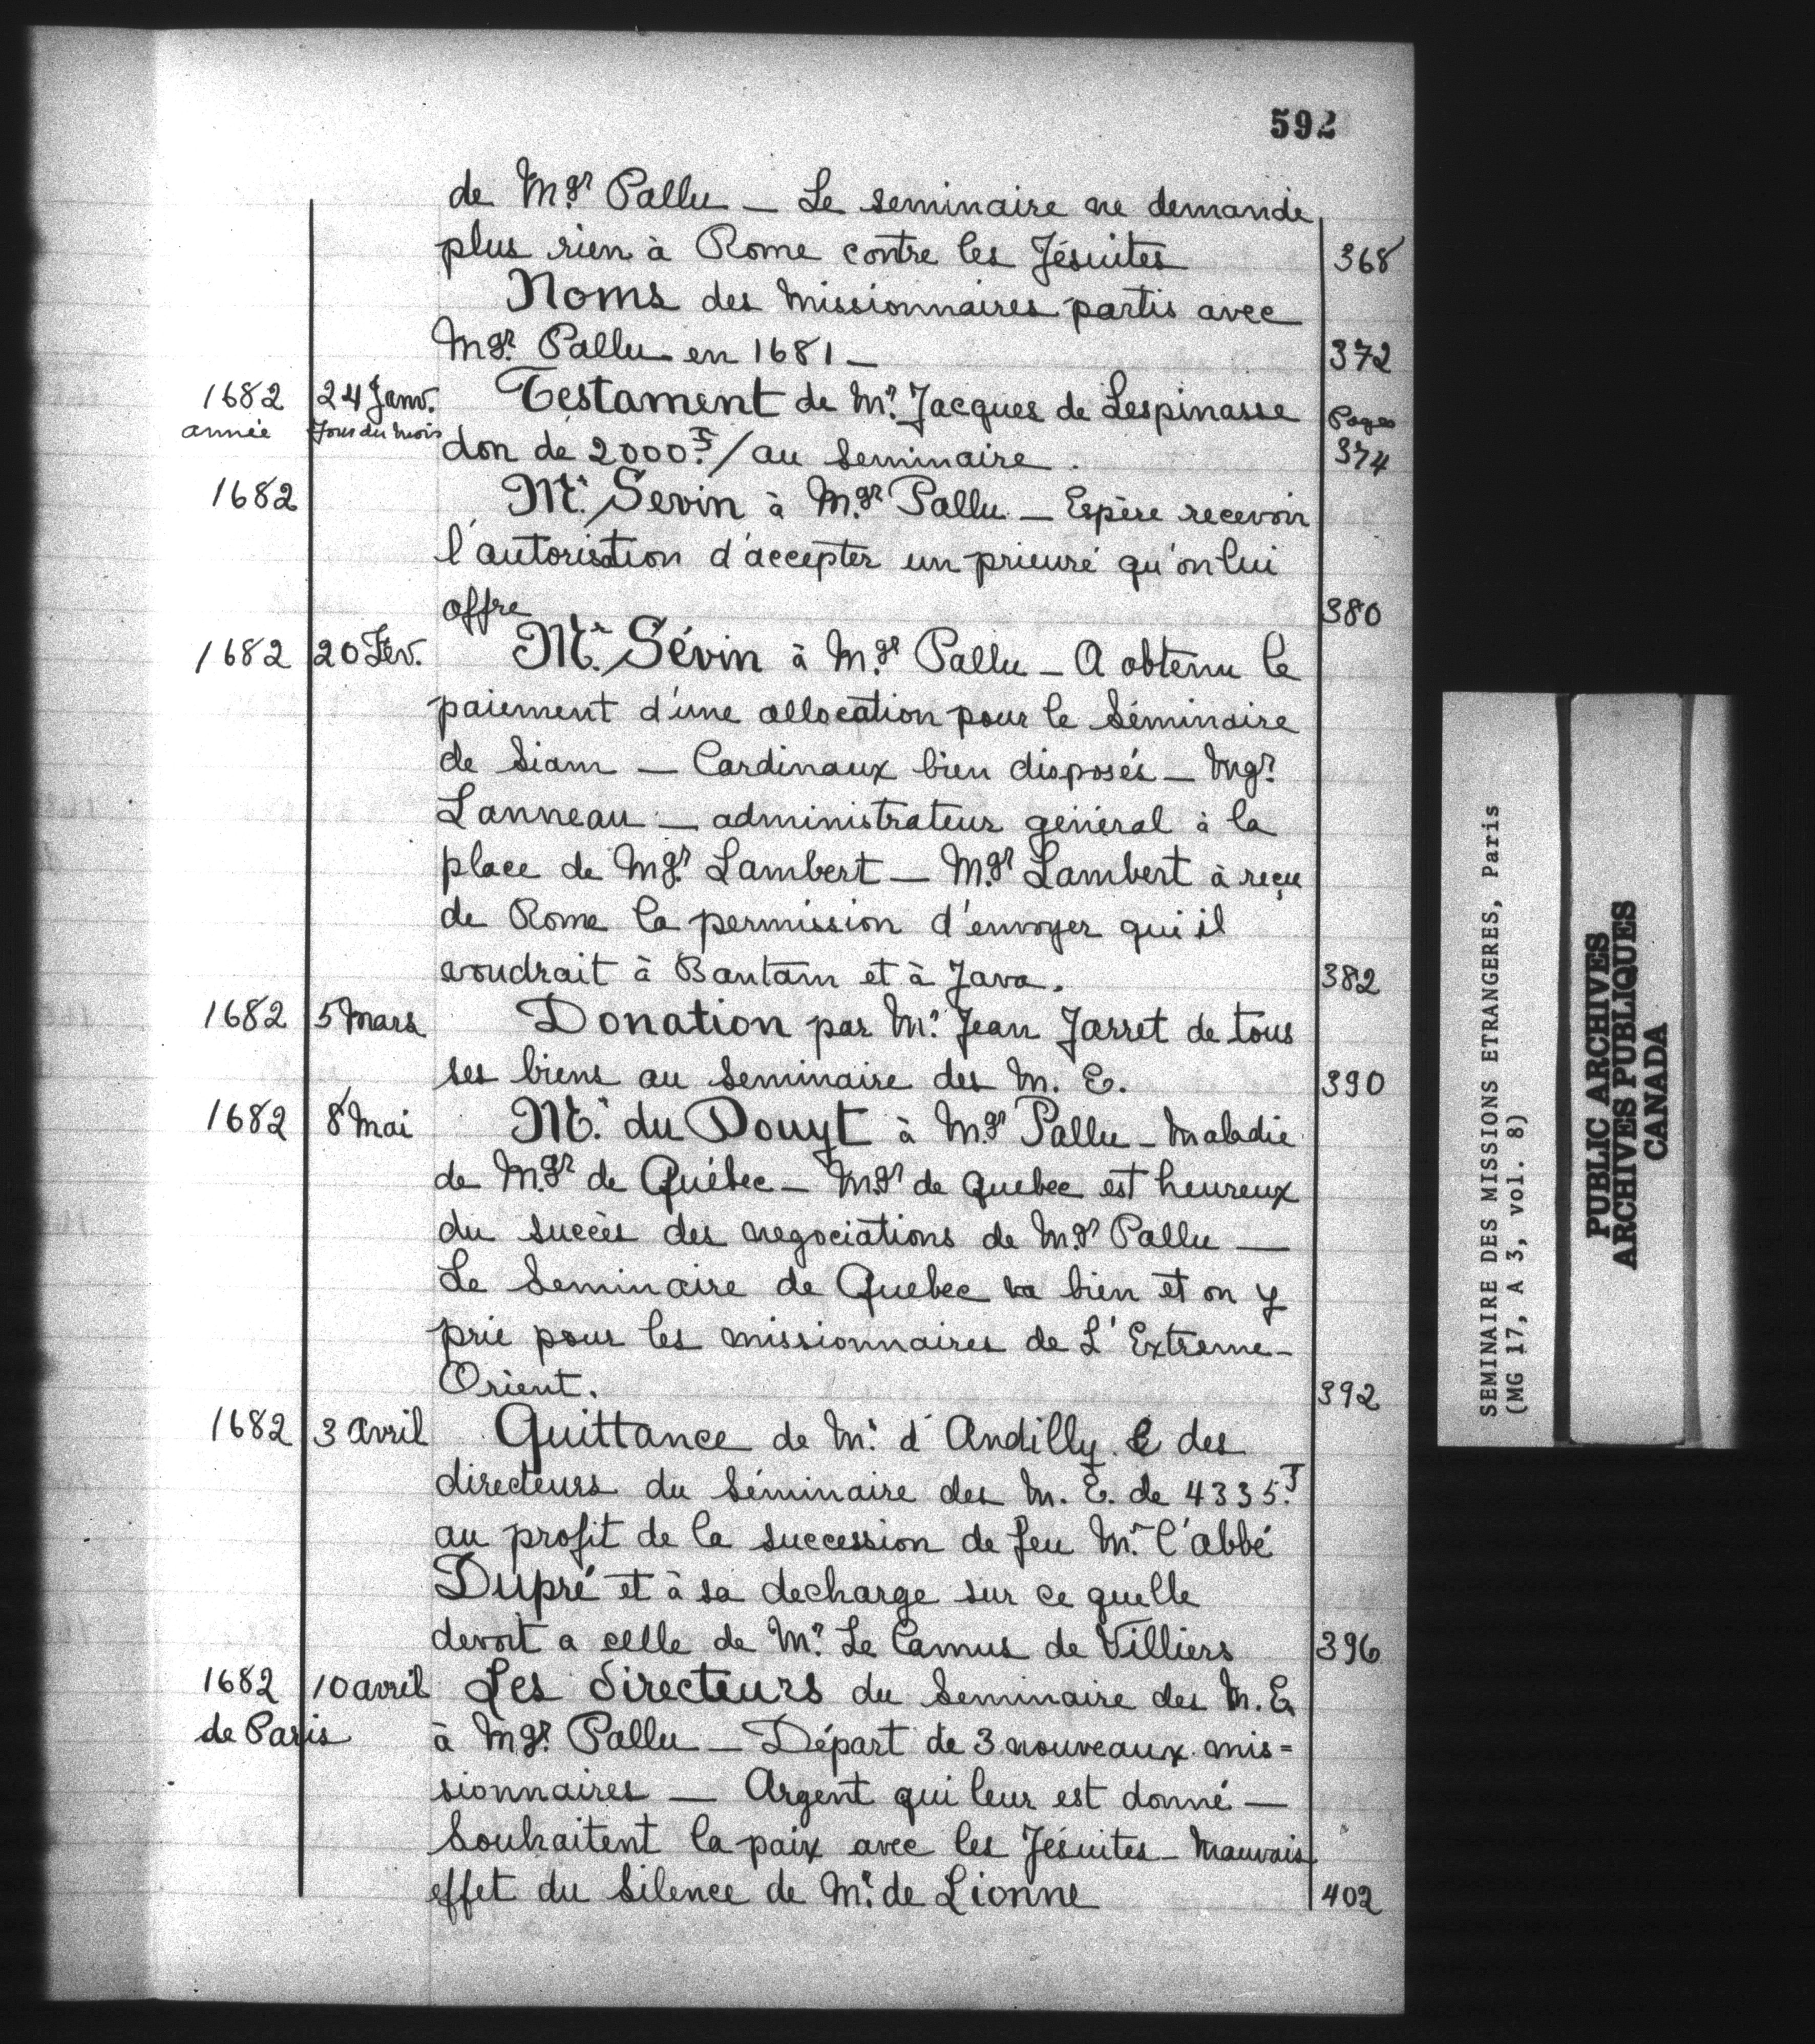 592
de Mgr Pallu — Le seminaire ne demande
plus rien à Rome contre les Jésuites 368
Noms des Missionnaires partis avec
Mgr. Pallu en 1681 — 372
1682 24 Janv. Testament de Mr. Jacques de Lespinasse Pages
année Jour du mois don de 2000.F / au Seminaire. 374
1682 Mr. Sevin à M.gr Pallu — Espère recevoir
l'autorisation d'accepter un prieuré qu'on lui
offre 380
1682 20 Fév. Mr. Sévin à M.gr Pallu — A obtenu le
paiement d'une allocation pour le Séminaire
de Siam — Cardinaux bien disposés — Mgr.
Lanneau — administrateur général à la
place de Mgr. Lambert — M.gr Lambert à reçu
de Rome la permission d'envoyer qui il
voudrait à Bantam et à Java. 382
1682 5 Mars Donation par Mr. Jean Jarret de tous
ses biens au Seminaire des M. E. 390
1682 8 Mai Mr. du Douyt à M.gr Pallu — Maladie
de M.gr de Québec — M.gr de Quebec est heureux
du succès des negociations de M.gr Pallu —
Le Seminaire de Quebec va bien et on y
prie pour les missionnaires de L'Extreme-
Orient. 392
1682 3 Avril Quittance de Mr. d'Andilly & des
directeurs du Séminaire des M. E. de 4335.F
au profit de la succession de feu Mr. l'abbé
Dupré et à sa decharge sur ce quelle
devoit a celle de Mr. Le Camus de Villiers 396
1682 10 avril Les directeurs du Seminaire des M. E
de Paris à Mgr. Pallu — Départ de 3 nouveaux mis=
sionnaires — Argent qui leur est donné —
Souhaitent la paix avec les Jésuites — Mauvais
effet du Silence de Mr. de Lionne 402
SEMINAIRE DES MISSIONS ETRANGERES, Paris
(MG 17, A 3, vol. 8)
PUBLIC ARCHIVES
ARCHIVES PUBLIQUES
CANADA